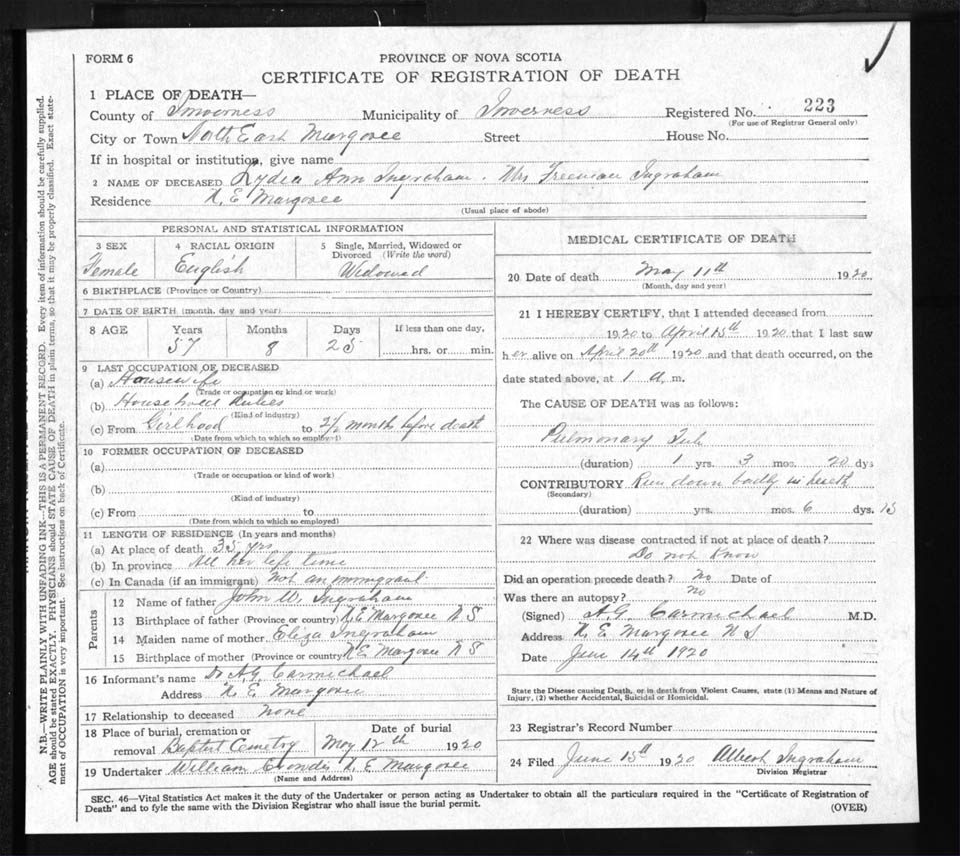 FORM 6
PROVINCE OF NOVA SCOTIA
CERTIFICATE OF REGISTRATION OF DEATH
1 PLACE OF DEATH—
County of Inverness Municipality of Inverness Registered No. 223
(For use of Registrar General only)
City or Town North East Margaree Street House No.
If in hospital or institution, give name
2 NAME OF DECEASED Lydia Ann Ingraham. Mrs Freeman Ingraham
Residence N. E Margaree
(Usual place of abode)
PERSONAL AND STATISTICAL INFORMATION
3 SEX 4 RACIAL ORIGIN 5 Single, Married, Widowed or
Divorced (Write the word)
Female English Widowed
6 BIRTHPLACE (Province or Country)
7 DATE OF BIRTH (month, day and year)
8 AGE Years Months Days If less than one day,
57 8 25 hrs. or min.
9 LAST OCCUPATION OF DECEASED
(a) Housewife
(Trade or occupation or kind or work)
(b) Household Duties
(Kind of industry)
(c) From Girlhood to 2½ months before death
(Date from which to which so employed)
10 FORMER OCCUPATION OF DECEASED
(a)
(Trade or occupation or kind of work)
(b)
(Kind of industry)
(c) From to
(Date from which to which so employed)
11 LENGTH OF RESIDENCE (In years and months)
(a) At place of death 35 yrs
(b) In province All her life time
(c) In Canada (if an immigrant) Not an immigrant
Parents
12 Name of father John W. Ingraham
13 Birthplace of father (Province or country) N. E Margaree N S
14 Maiden name of mother Eliza Ingraham
15 Birthplace of mother (Province or country) N E Margaree N S
16 Informant's name Dr AG Carmichael
Address N. E Margaree
17 Relationship to deceased None
18 Place of burial, cremation or Date of burial
removal Baptist Cemetry May 12th 1920
19 Undertaker William N. E Margaree
(Name and Address)
MEDICAL CERTIFICATE OF DEATH
20 Date of death May 11th 1920
(Month, day and year)
21 I HEREBY CERTIFY, that I attended deceased from
1920 to April 15th 1920 that I last saw
her alive on April 20th 1920 and that death occurred, on the
date stated above, at 1 a. m.
The CAUSE OF DEATH was as follows:
Pulmonary Tub
(duration) 1 yrs. 3 mos. 20 dys
CONTRIBUTORY Run down badly in health
(Secondary)
(duration) yrs. mos. 6 dys. 15
22 Where was disease contracted if not at place of death?
Do not Know
Did an operation precede death? no Date of
Was there an autopsy? no
(Signed) A.G Carmichael M.D.
Address N. E Margaree N S
Date June 14th 1920
State the Disease causing Death, or in death from Violent Causes, state (1) Means and Nature of
Injury, (2) whether Accidental, Suicidal or Homicidal.
23 Registrar's Record Number
24 Filed June 15th 1920 Albert Ingraham
Division Registrar
SEC. 46—Vital Statistics Act makes it the duty of the Undertaker or person acting as Undertaker to obtain all the particulars required in the "Certificate of Registration of
Death" and to fyle the same with the Division Registrar who shall issue the burial permit. (OVER)
N.B.—WRITE PLAINLY WITH UNFADING INK—THIS IS A PERMANENT RECORD. Every item of information should be carefully supplied.
AGE should be stated EXACTLY. PHYSICIANS should STATE CAUSE OF DEATH in plain terms, so that it may be properly classified. Exact state-
ment of OCCUPATION is very important. See instructions on back of Certificate.